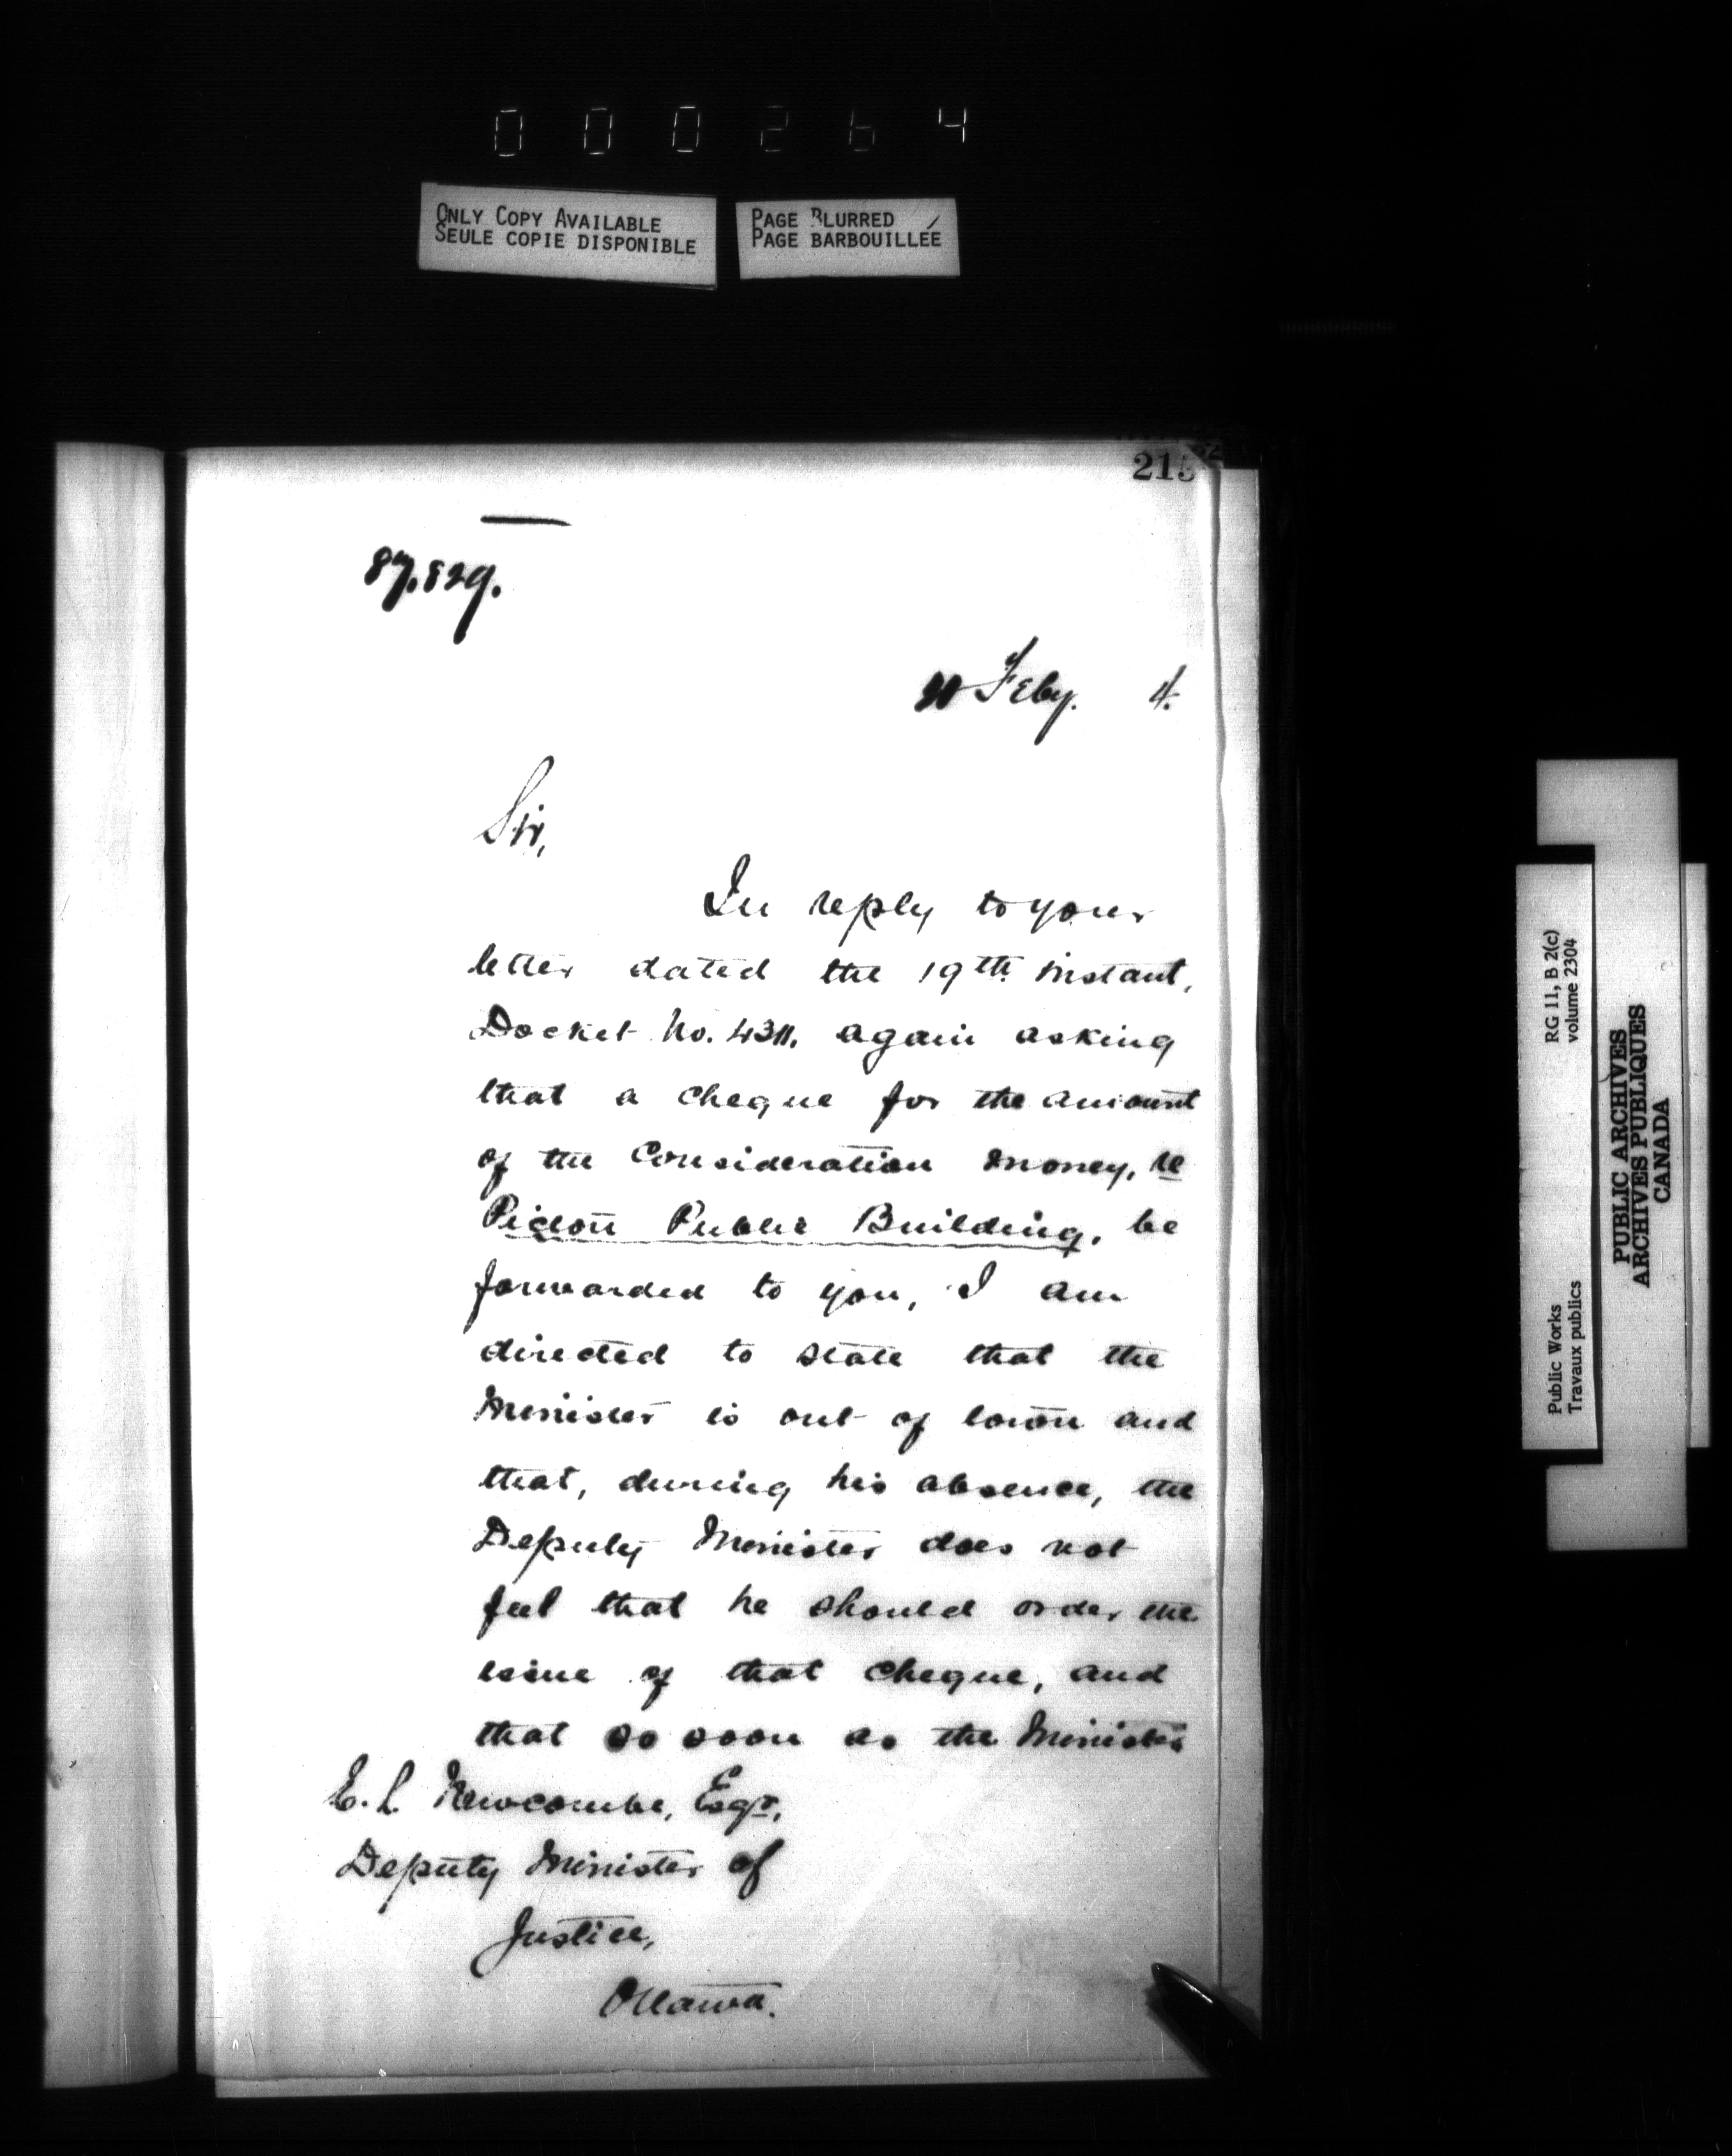 000264
ONLY COPY AVAILABLE
SEULE COPIE DISPONIBLE
PAGE BLURRED
PAGE BARBOUILLÉE
215
87.829.
Feby. 4.
Sir,
In reply to your
letter dated the 19th instant,
Docket No. again asking
that a cheque for the amount
of the Consideration money, re
Picton Public Building, be
forwarded to you, I am
directed to state that the
Minister is out of town and
that, during his absence, the
Deputy Minister does not
feel that he should order the
issue of that cheque, and
that so soon as the Minister
E. L. Newcombe, Esqr.,
Deputy Minister of
Justice,
Ottawa.
Public Works
Travaux publics
RG 11, B 2(c)
volume 2304
PUBLIC ARCHIVES
ARCHIVES PUBLIQUES
CANADA